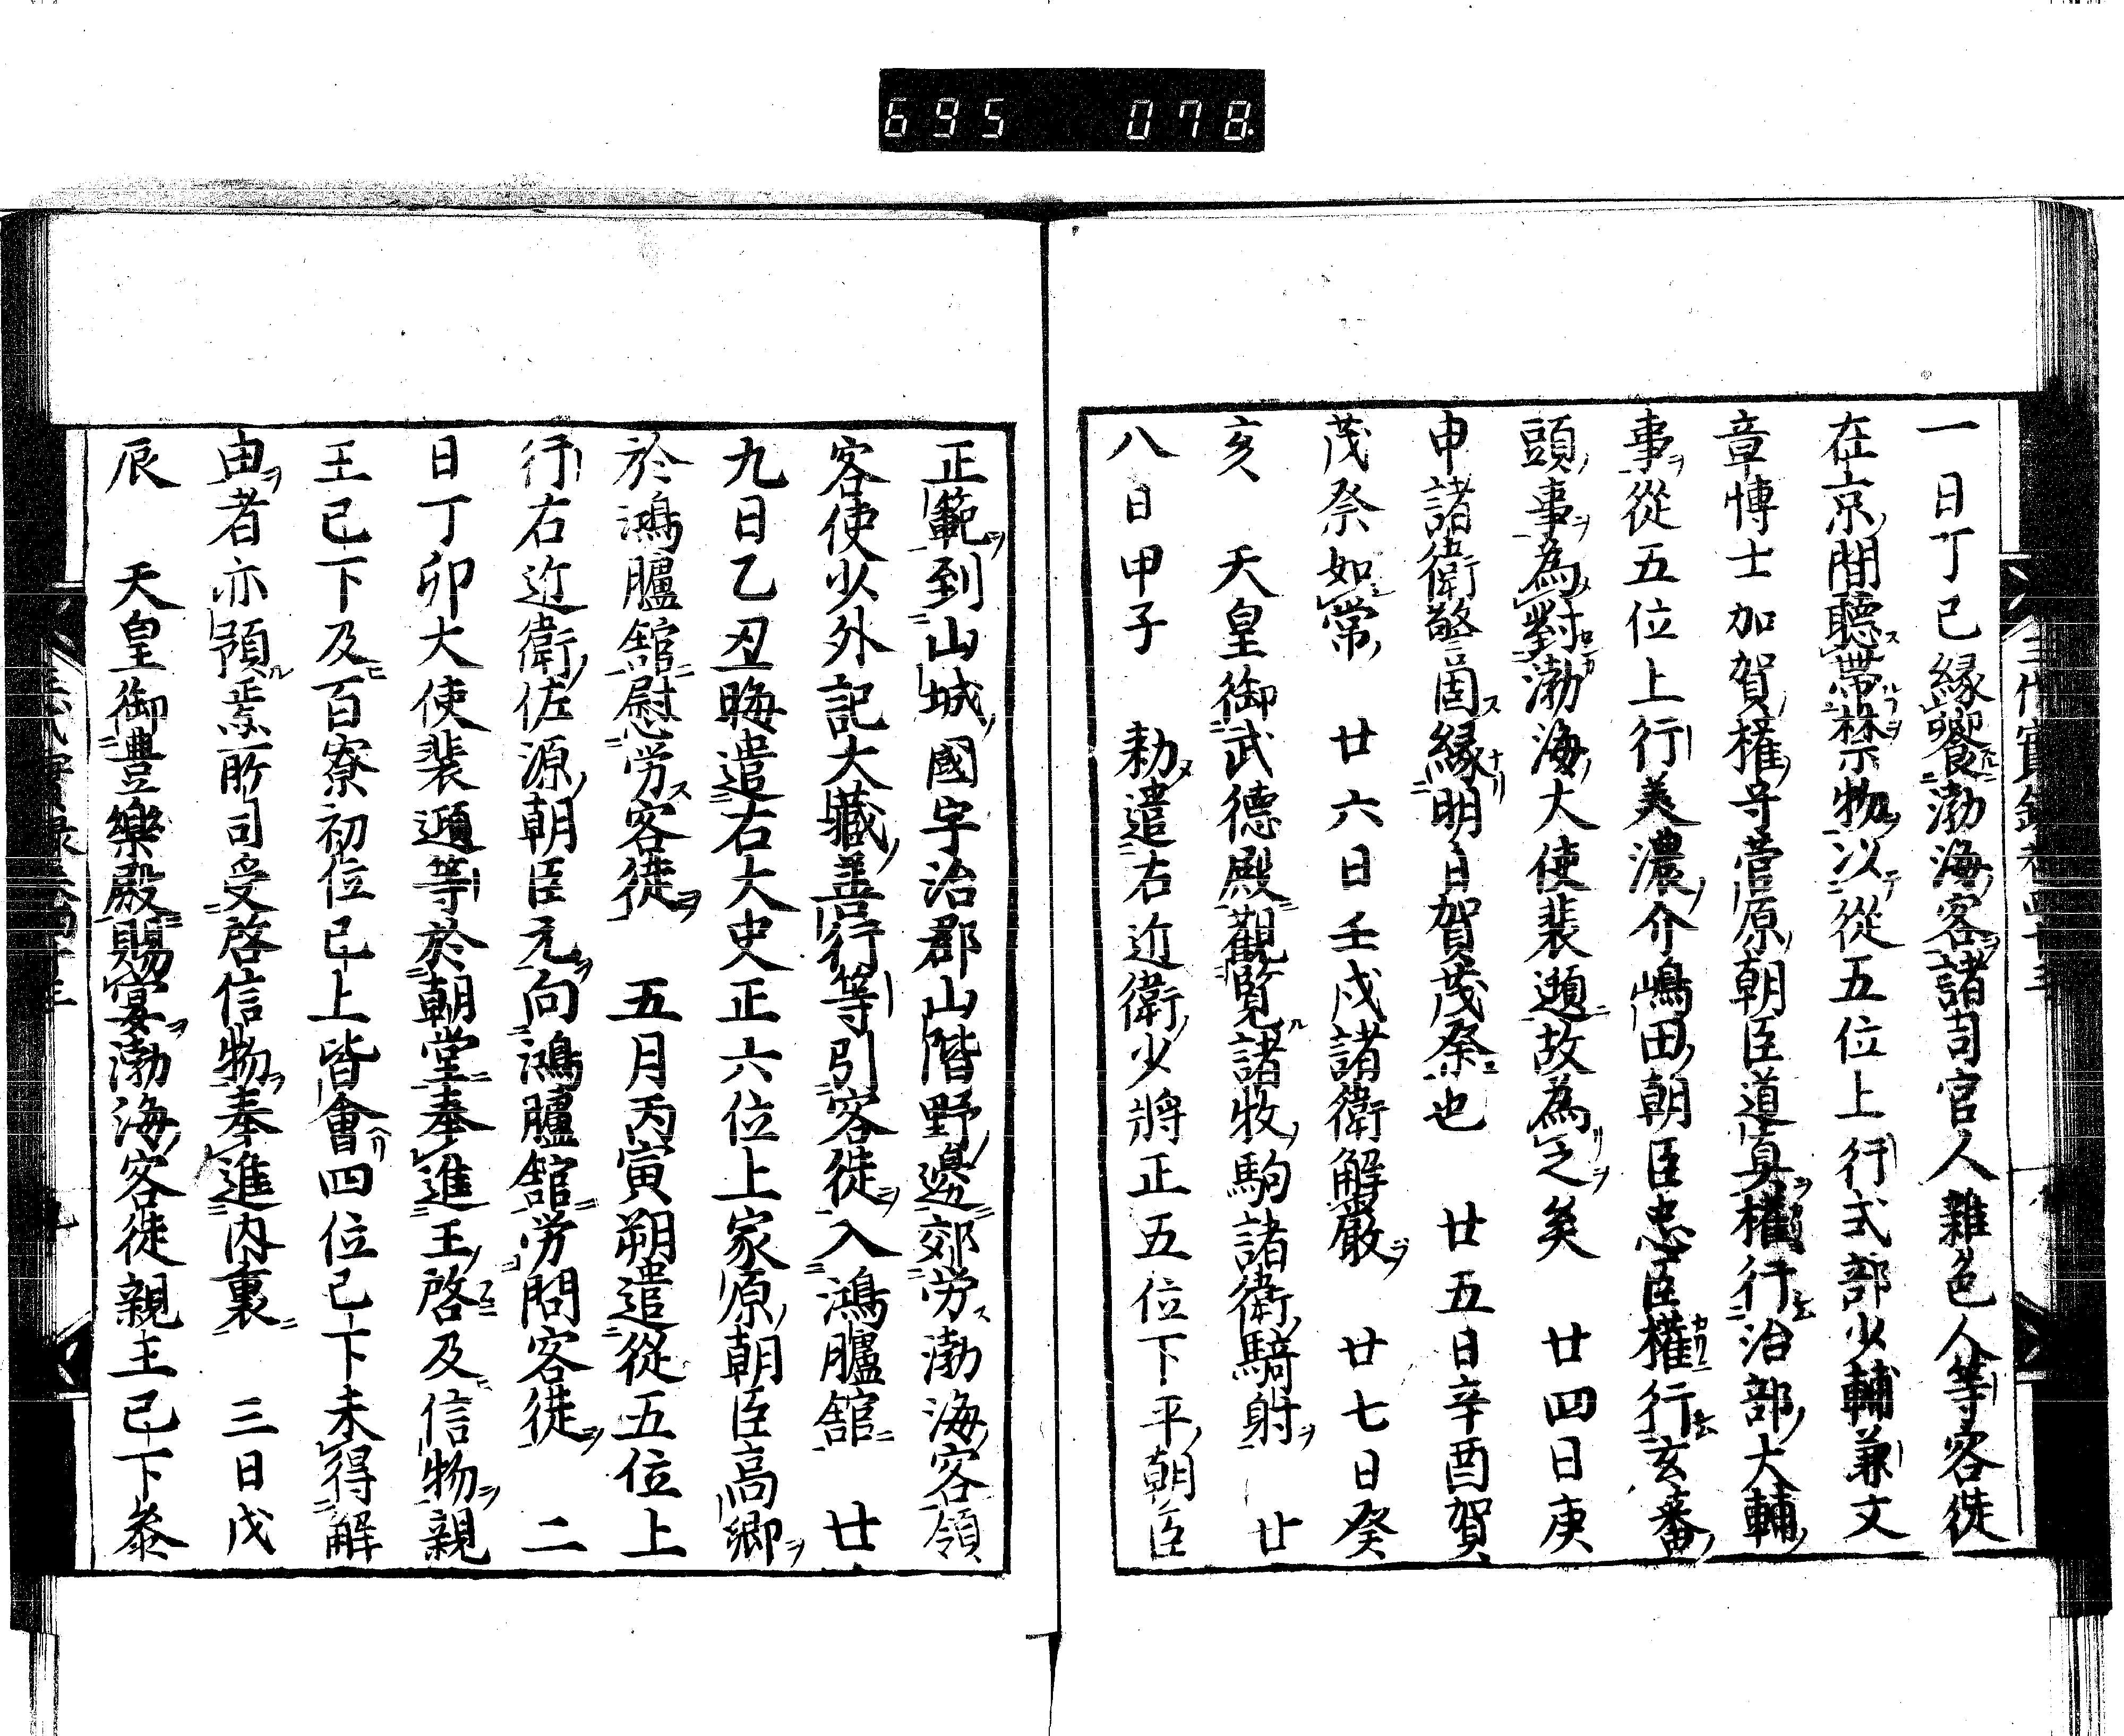 695 078.
一日丁巳縁饗渤海客諸司官人雜色人等客徒
在京間聽帶禁物以從五位上行式部少輔兼文
章博士加賀權守菅原朝臣道真權行治部大輔
事從五位上行美濃介嶋田朝臣忠臣權行玄蕃
頭事為對渤海大使裴頲故為之矣　廿四日庚
申諸衛警固縁明日賀茂祭也　廿五日辛酉賀
茂祭如常　廿六日壬戌諸衛解嚴　廿七日癸
亥　天皇御武德殿觀覧諸牧駒諸衛騎射　廿
八日甲子　勑遣右近衛少將正五位下平朝臣
正範到山城國宇治郡山階野邊郊労渤海客領
客使少外記大藏善行等引客徒入鴻臚舘　廿
九日乙丑晦遣右大史正六位上家原朝臣高郷
於鴻臚舘慰労客徒　五月丙寅朔遣從五位上
行右近衛佐源朝臣元向鴻臚舘労問客徒　二
日丁卯大使裴頲等於朝堂奉進王啓及信物親
王已下及百寮初位已上皆會四位已下未得解
由者亦預焉所司受啓信物奉進内裏　三日戊
辰　天皇御豊樂殿賜宴渤海客徒親王已下參